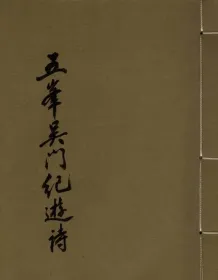 五峯吴门纪遊诗